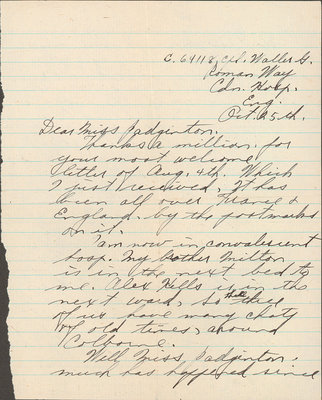 C. 64118, Cpl. Waller G.
Roman Way
Cdn. Hosp.
Eng.
Oct. 25th.
Dear Miss Padginton.
Thanks a million for
your most welcome
letter of Aug. 4th. Which
I just received, It has
been all over France &
England. by the postmarks
on it.
I am now in convalescent
hosp. My brother Milton
is in the next bed to
me. Alex Wells is in the
next ward, so the three
of us have many chats
of old times, around
Colborne.
Well Miss, Padginton.
much has happened since